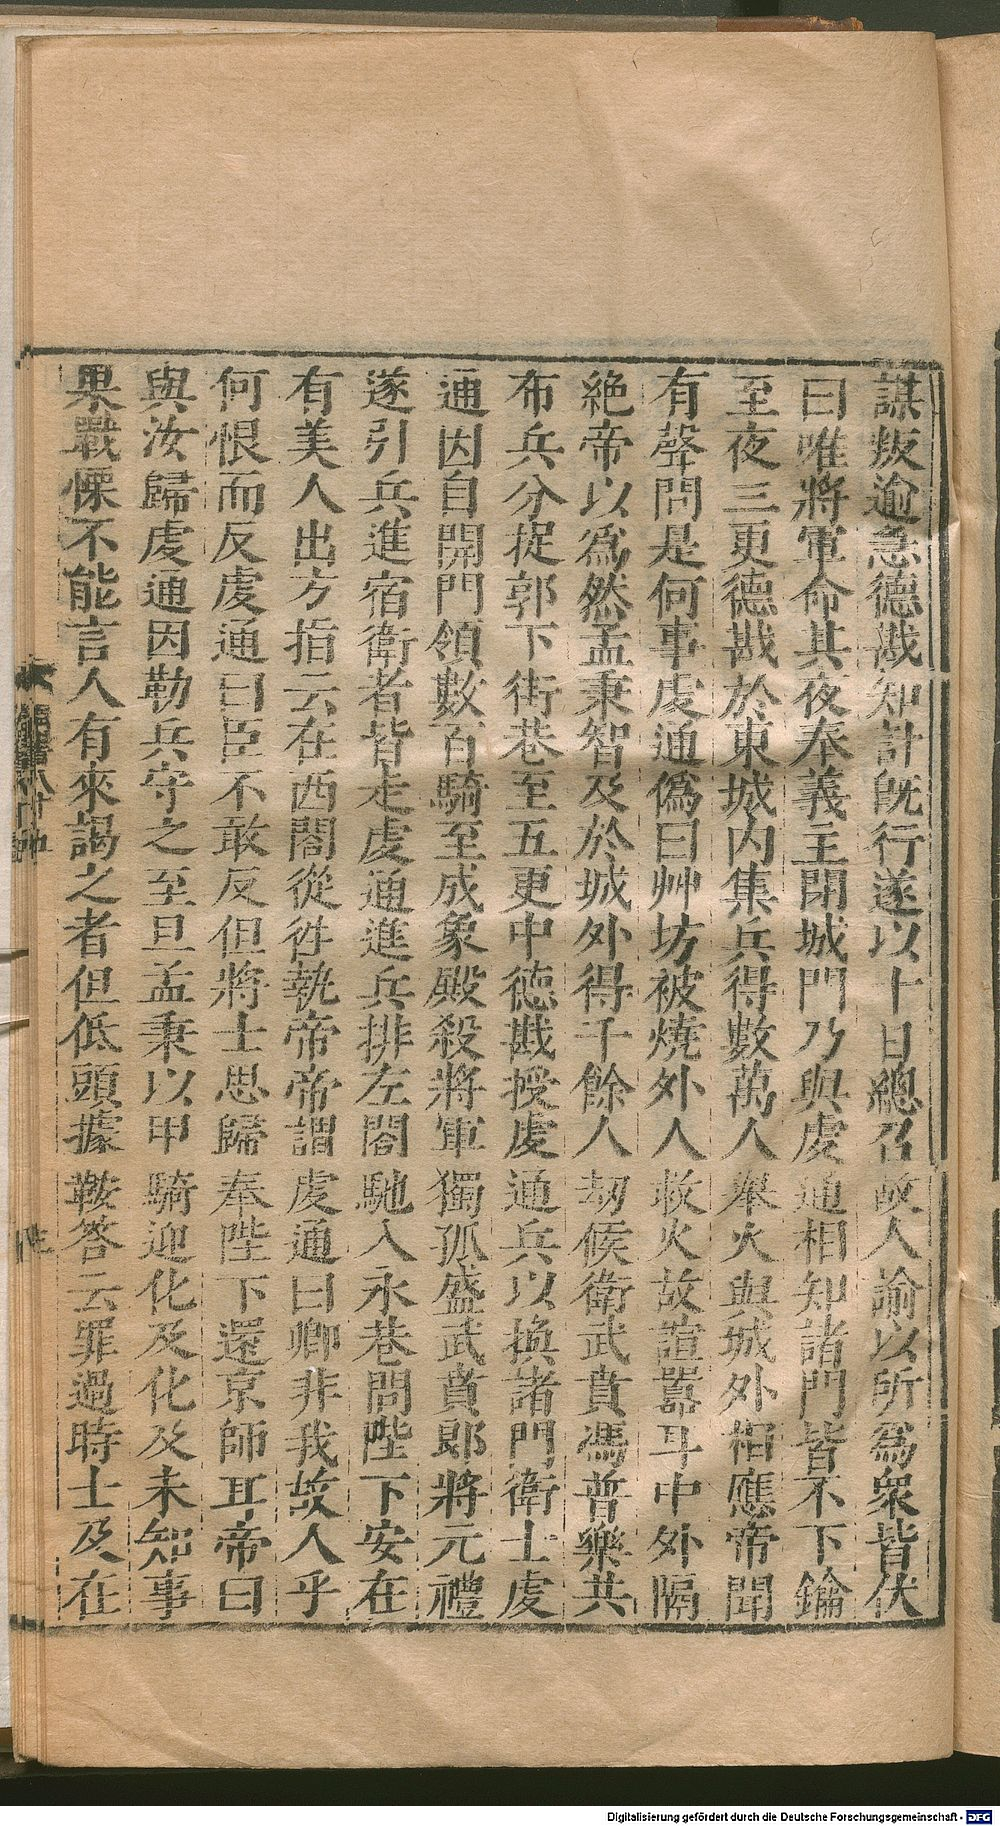 謀叛逾急德戡知計旣行遂以十日總召故人諭以所爲衆皆伏
曰唯將軍命其夜奉義主閉城門乃與虔通相知諸門皆不下鑰
至夜三更德戡於東城内集兵得數萬人舉火與城外相應帝聞
有聲問是何事虔通僞曰艸坊被燒外人救火故諠嚣耳中外隔
絶帝以爲然孟秉智及於城外得千餘人刼候衛武賁馮普樂共
布兵分捉郭下街巷至五更中德戡授虔通兵以換諸門衛士虔
通因自開門領數百騎至成象殿殺將軍獨孤盛武賁郞將元禮
遂引兵進宿衛者皆走虔通進兵排左閤馳入永巷問陛下安在
有美人出方指云在西閤從徃執帝帝謂虔通曰卿非我故人乎
何恨而反虔通曰臣不敢反但將士思歸奉陛下還京師耳帝曰
與汝歸虔通因勒兵守之至旦孟秉以甲騎迎化及化及未知事
果戰慄不能言人有來謁之者但低頭據鞍答云罪過時士及在
Digitalisierung gefördert durch die Deutsche Forschungsgemeinschaft - DFG